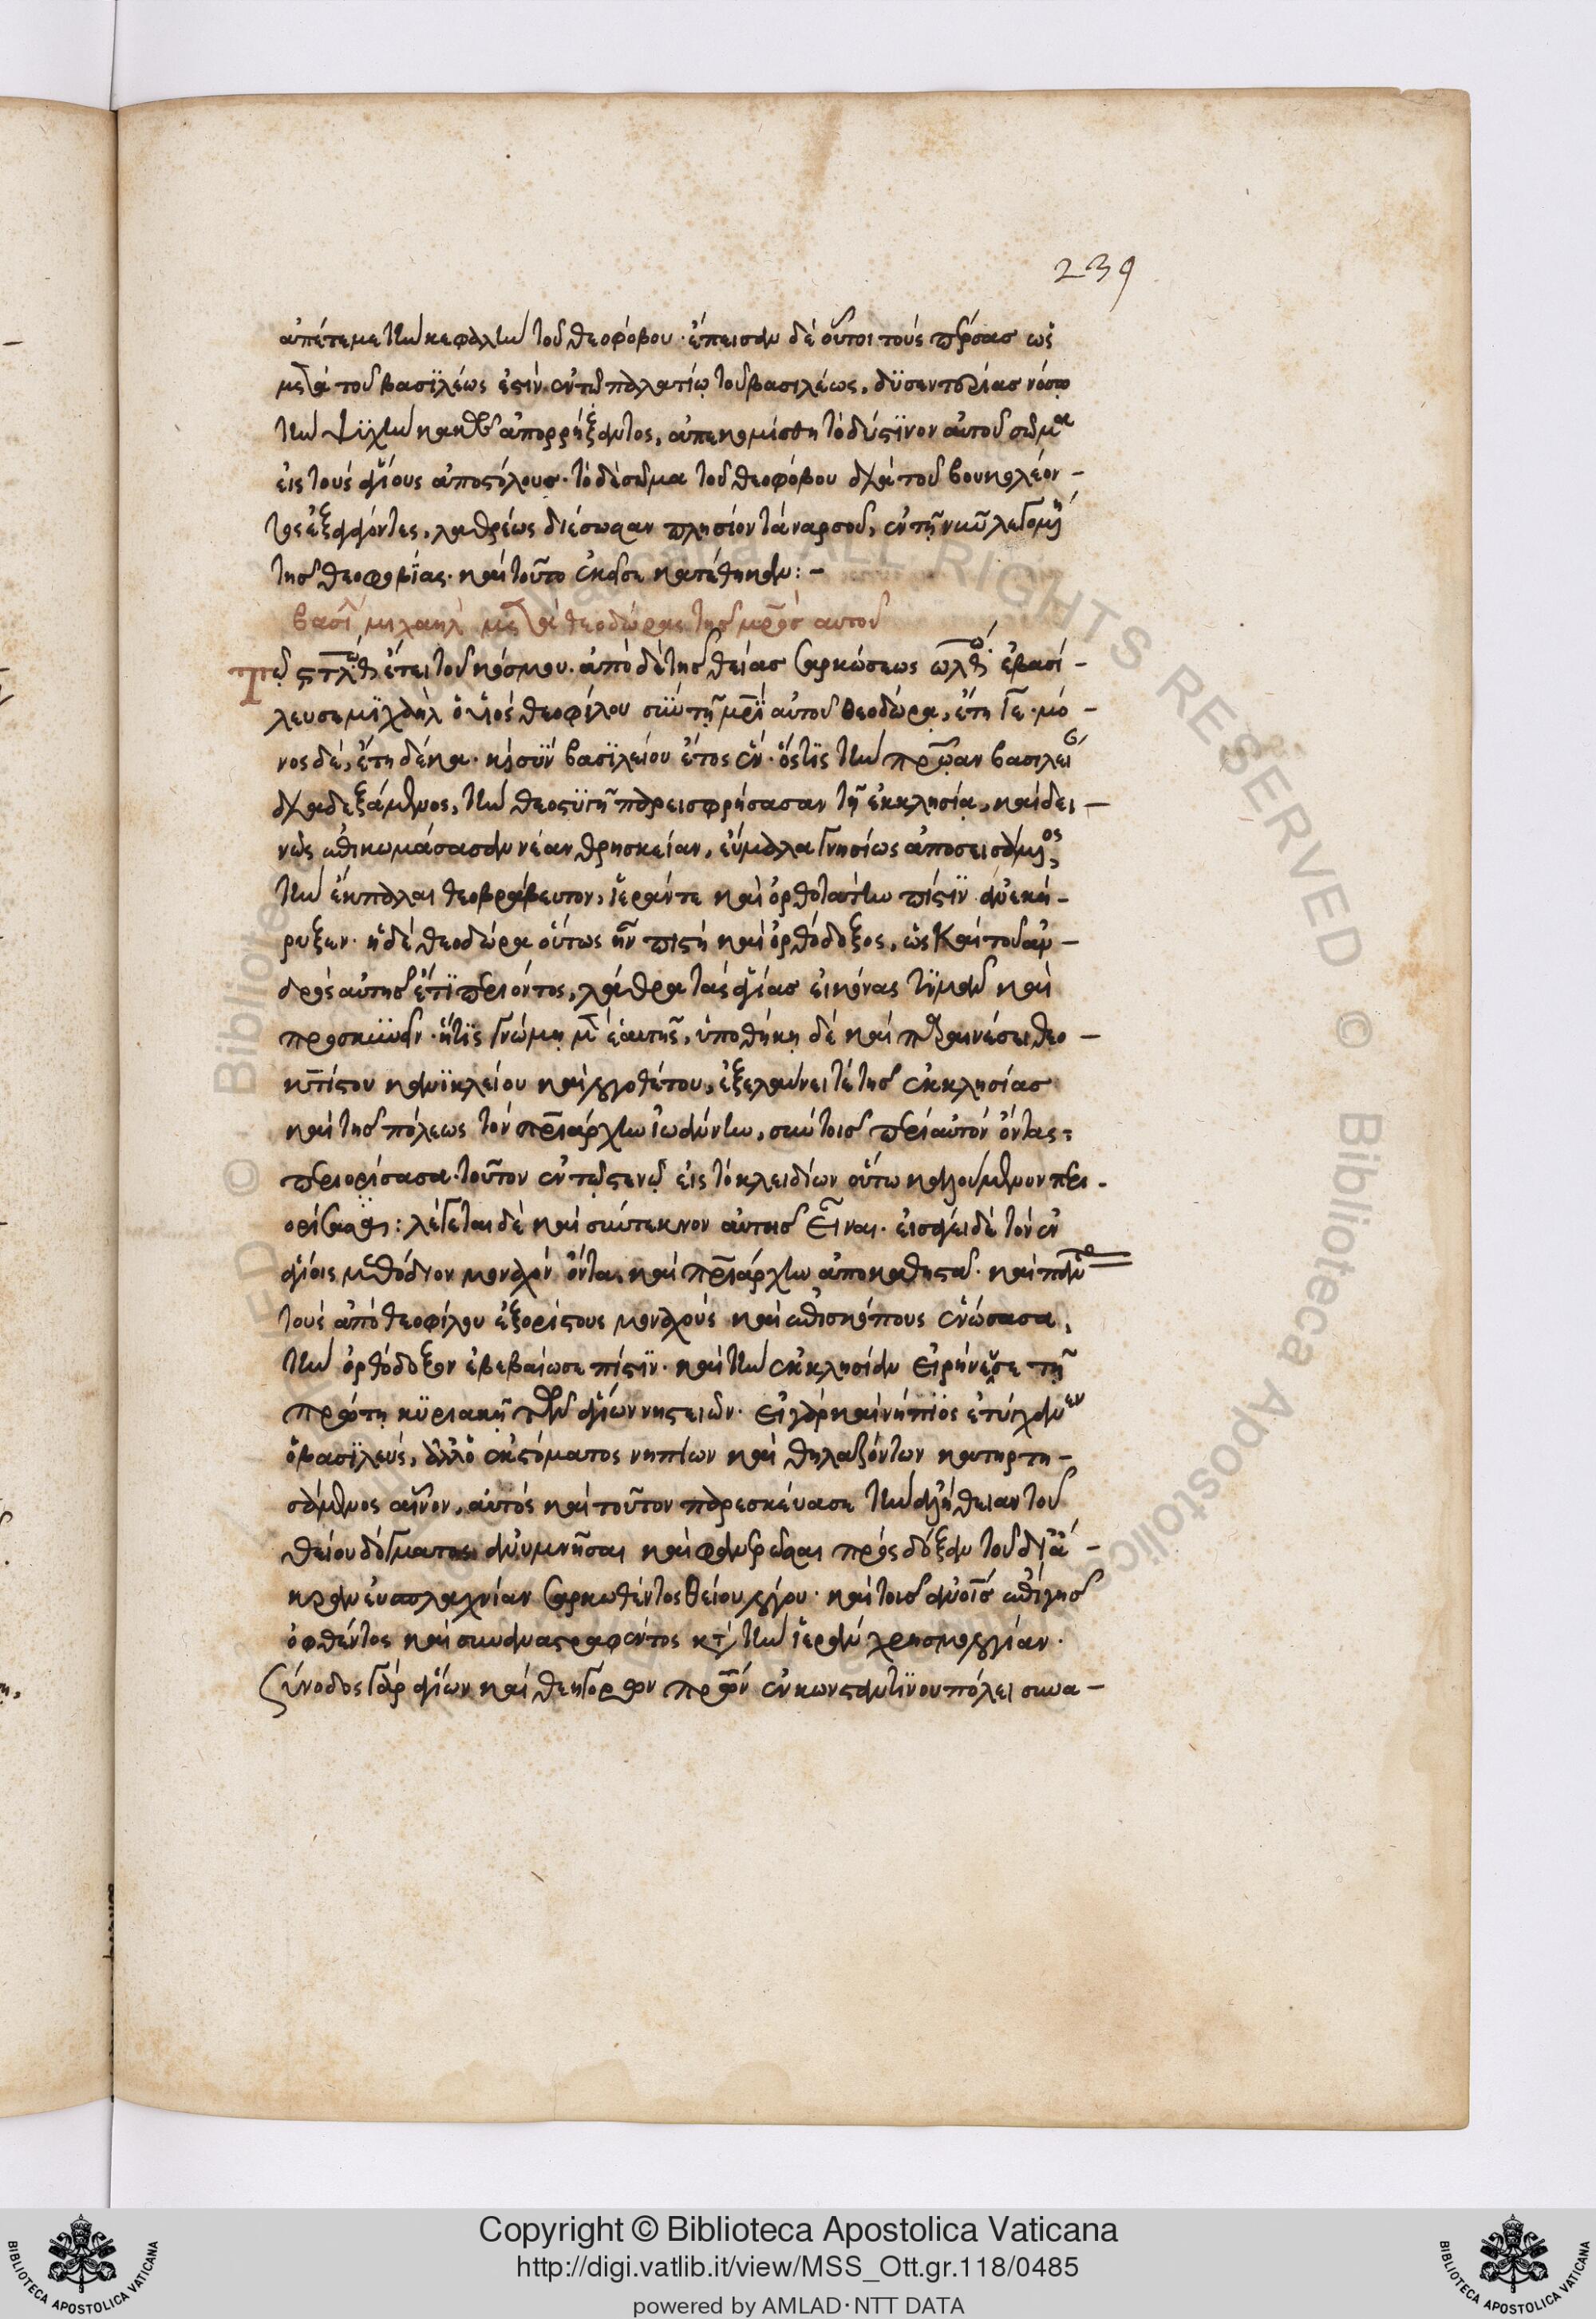 239
ἀπέτεμε τὴν κεφαλὴν τοῦ θεοφόβου · ἔπεισαν δὲ οὗτοι τοὺς πέρσας ὡς
μετὰ τοῦ βασιλέως ἐστὶν ἐν τῷ παλατίῳ τοῦ βασιλέως, δυσεντερίας νόσῳ
τὴν ψυχὴν ἀπορρήξαντος, ἀπεκομίσθη τὸ δύστηνον αὐτοῦ σῶμα
εἰς τοὺς ἁγίους ἀποστόλους · τὸ δὲ σῶμα τοῦ θεοφόβου διὰ τοῦ βουκολέον-
τος ἐξαγαγόντες, λαθραίως διέσωσαν πλησίον τὰ ναρσοῦ, ἐν τῇ μονῇ λεγομένῃ
τῆς θεοφοβίας · καὶ τοῦτο ἐκεῖσε κατέθηκαν : -
βασι μιχαηλ μετὰ θεοδώρας τῆς μρς αὐτοῦ
Τῷ ςτλθ ἔτει τοῦ κόσμου · ἀπὸ δὲ τῆς θείας σαρκώσεως ωλθ ἐβασί-
λευσε μιχαὴλ ὁ υἱὸς θεοφίλου σὺν τῇ μρὶ αὐτοῦ θεοδώρᾳ, ἔτη ιε · μό-
νος δὲ, ἔτη δέκα · καὶ σὺν βασιλείῳ ἔτος ἓν · ὅστις τὴν πρώαν βασιλείαν
διαδεξάμενος, τὴν θεοστυγῆ παρεισφρήσασαν τῇ ἐκκλησίᾳ, καὶ δει-
νῶς ἐπικωμάσασαν νέαν θρησκείαν, εὖ μάλα γνησίως ἀποσεισάμενος,
τὴν ἔκπαλαι θεοβράβευτον, ἱεράν τε καὶ ὀρθοτάτην πίστιν ἀνεκή-
ρυξεν · ἡ δὲ θεοδώρα οὕτως ἦν πιστὴ καὶ ὀρθόδοξος, ὡς καὶ τοῦ ἀν-
δρὸς αὐτῆς ἔτι περιόντος, λάθρα τὰς ἁγίας εἰκόνας τιμᾶν καὶ
προσκυνεῖν · ἥτις γνώμῃ μὲν ἑαυτῆς, ὑποθήκῃ δὲ καὶ παραινέσει θεο-
κτίστου κανικλείου καὶ λογοθέτου, ἐξελαύνει τε τῆς ἐκκλησίας
καὶ τῆς πόλεως τὸν πριάρχην ἰωάννην, σὺν τοῖς περὶ αὐτὸν ὄντας :
περιορίσασα · τοῦτον ἐν τῷ στενῷ εἰς τὸ κλειδίων οὕτω καλούμενον περι-
: λέγεται δὲ καὶ σύντεκνον αὐτοῖς εἶναι · εἰσάγει δὲ τὸν ἐν
ἁγίοις μεθόδιον μοναχὸν ὄντα, καὶ πριάρχην ἀποκαθιστᾷ · καὶ πάντας
τοὺς ἀπὸ θεοφίλου ἐξορίστους μοναχοὺς καὶ ἐπισκόπους ἑνώσασα,
τὴν ὀρθόδοξον ἐβεβαίωσε πίστιν · καὶ τὴν ἐκκλησίαν εἰρήνευσε τῇ
πρώτῃ κυριακῇ τῶν ἁγίων νηστειῶν · εἰ γὰρ καὶ νήπιος ἐτύγχανεν
ὁ βασιλεὺς, ἀλλ' ὁ ἐκ στόματος νηπίων καὶ θηλαζόντων καταρτη-
σάμενος αἶνον, αὐτὸς καὶ τοῦτον παρεσκεύασε τὴν ἀλήθειαν τοῦ
θείου δόγματος ἀνυμνῆσαι καὶ φανερῶσαι πρὸς δόξαν τοῦ δι' ἄ-
κραν εὐσπλαχνίαν σαρκωθέντος θείου λόγου · καὶ τοῖς ἀνοῖς ἐπὶ γῆς
ὀφθέντος καὶ συναναστραφέντος κτ τὴν ἱερὰν χρησμολογίαν ·
Σύνοδος γὰρ ἁγίων καὶ θεηγόρων πρων ἐν κωνσταντίνου πόλει συνα-
Copyright © Biblioteca Apostolica Vaticana
http://digi.vatlib.it/view/MSS_Ott.gr.118/0485
powered by AMLAD·NTT DATA